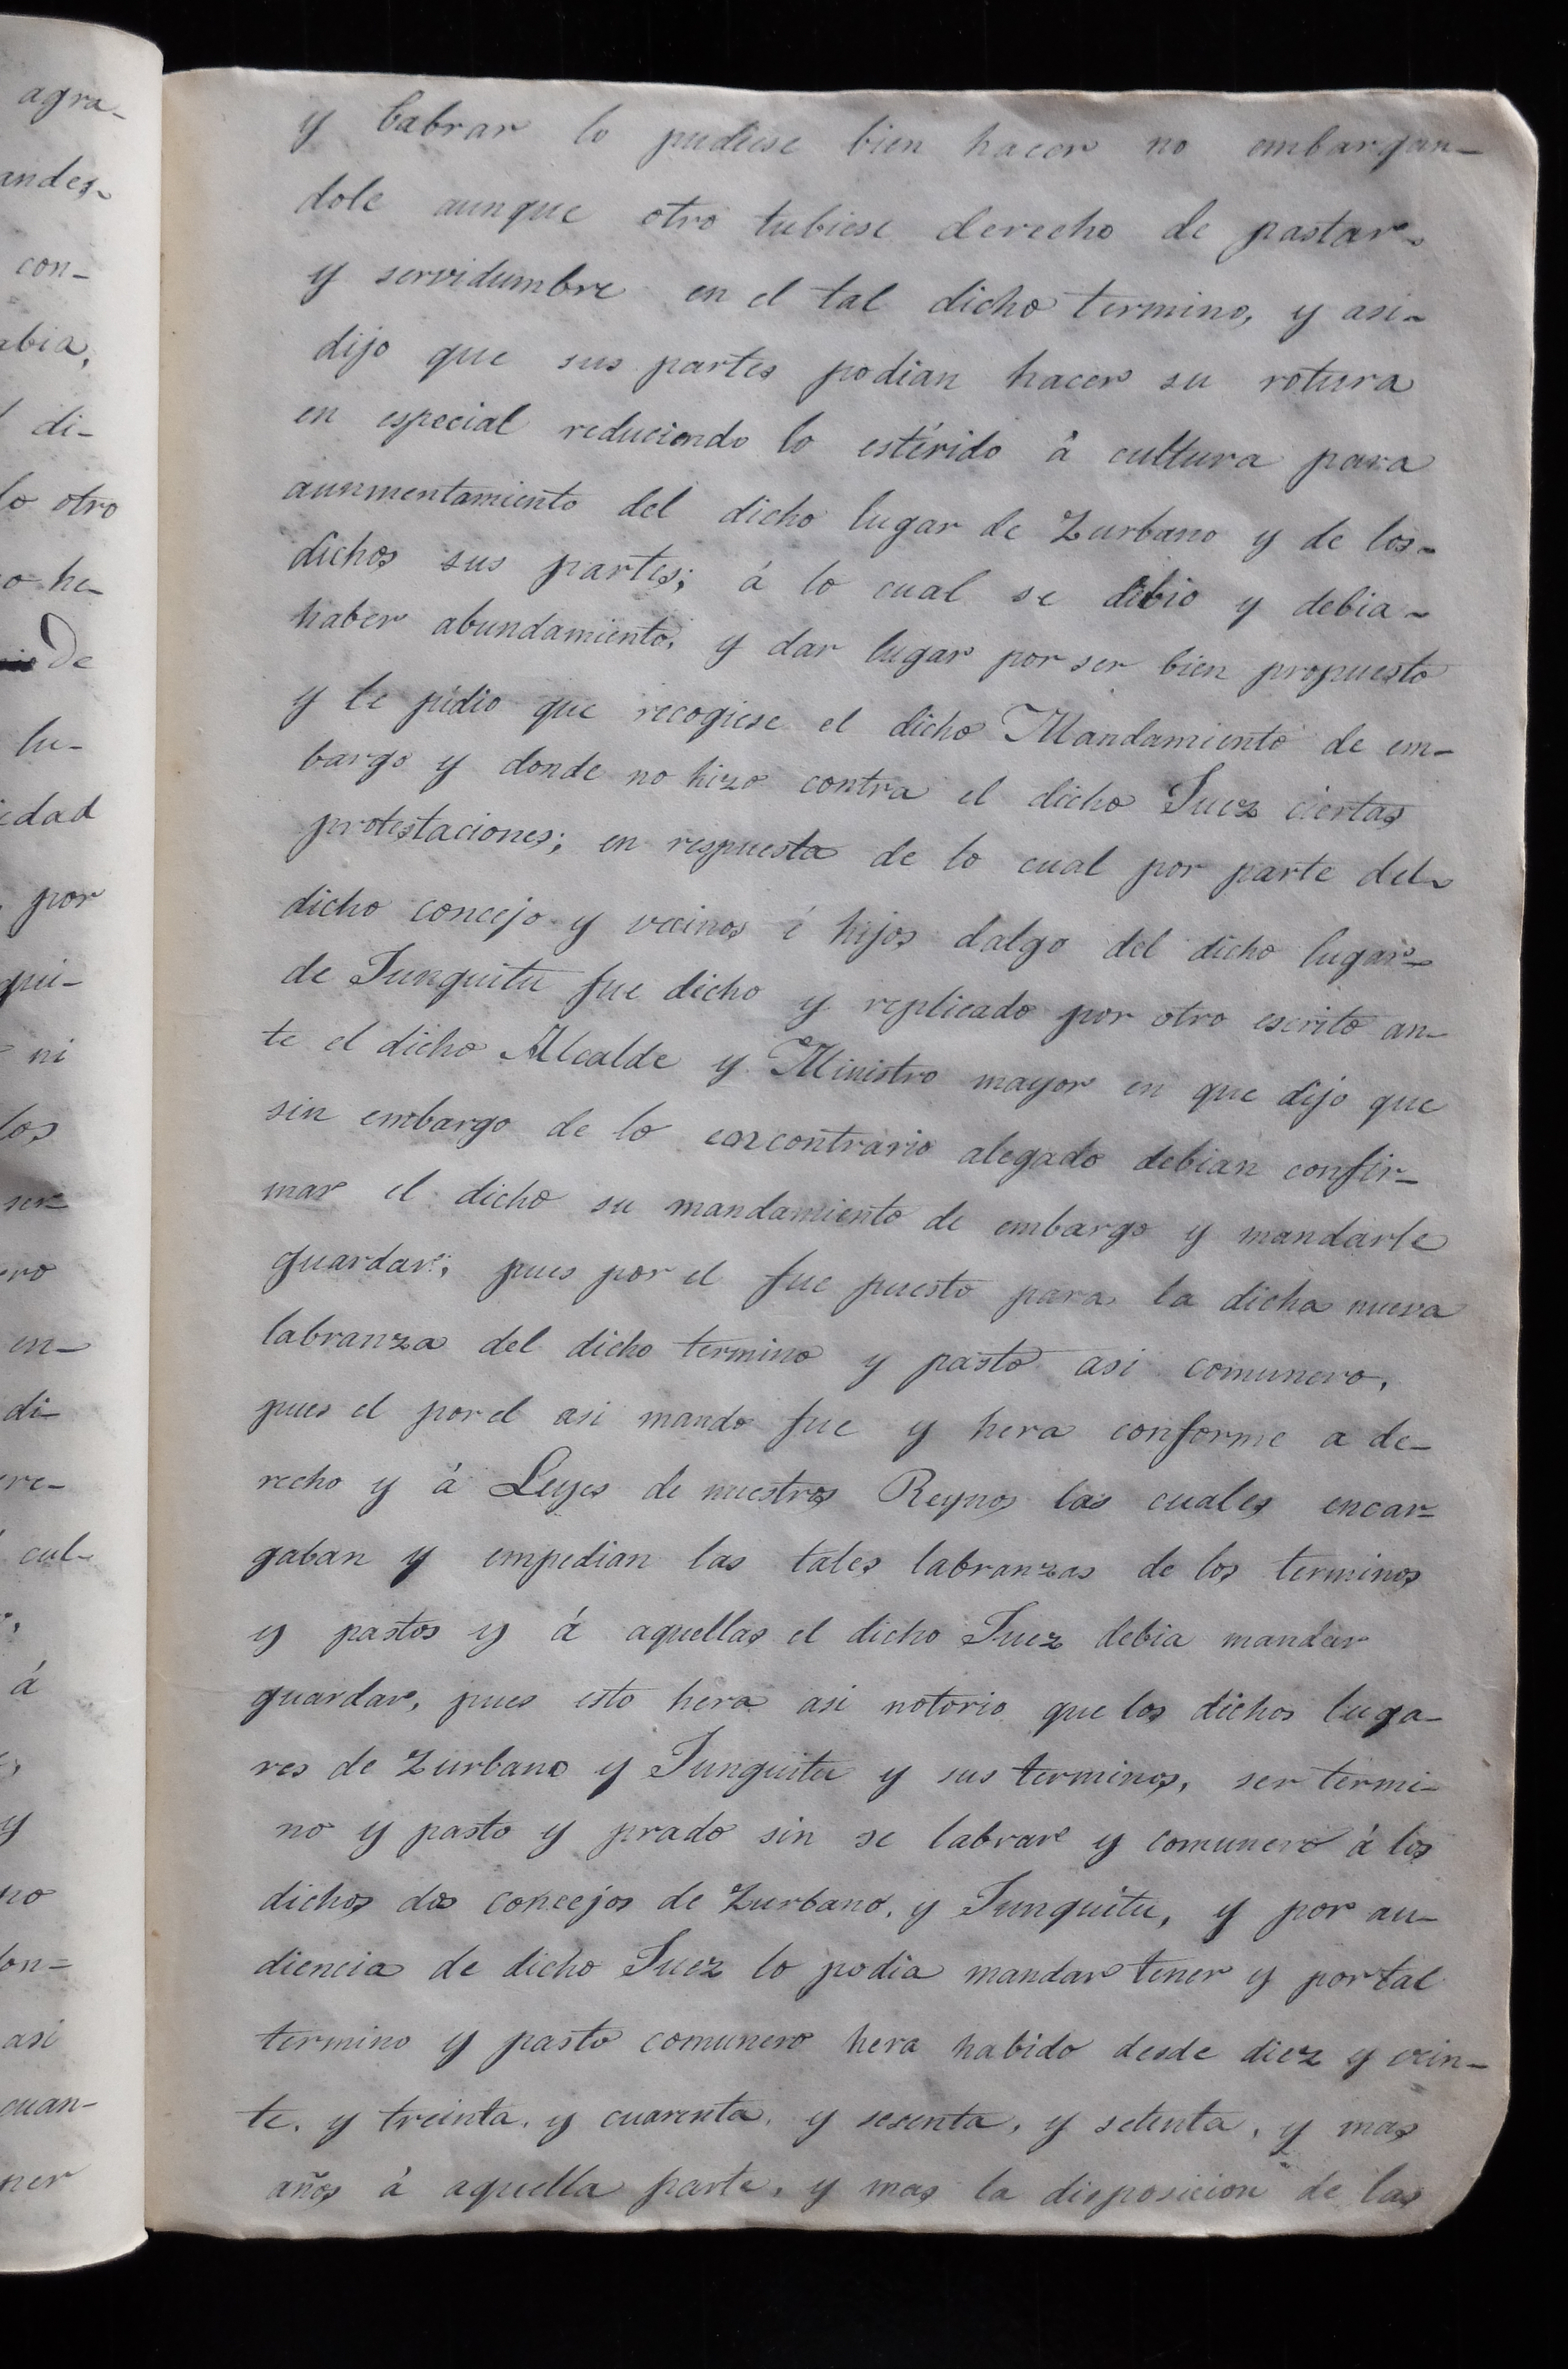 agra-
andes-
con-
abia,
di-
lo otro
o he-
De
lu-
edad
por
qui-
ni
los
ser
ero
en-
di-
re-
cul-
á
y
no
on=
asi
cuan-
ner
y labrar lo pudiese bien hacer no embargan-
dole aunque otro tubiese derecho de pastar-
y servidumbre en el tal dicho termino, y asi-
dijo que sus partes podian hacer su rotura
en especial reduciendo lo estérido á cultura para
aunmentamiento del dicho lugar de Zurbano y de los-
dichos sus partes; á lo cual se debio y debia-
haber abundamiento, y dar lugar por ser bien propuesto
y le pidio que recogiese el dicho Mandamiento de em-
bargo y donde no hizo contra el dicho Juez ciertas
protestaciones; en respuesta de lo cual por parte del-
dicho concejo y vecinos é hijos dalgo del dicho lugar-
de Junguitu fue dicho y replicado por otro escrito an-
te el dicho Alcalde y Ministro mayor en que dijo que
sin embargo de lo encontrario alegado debian confir-
mar el dicho su mandamiento de embargo y mandarle
guardar; pues por el fue puesto para la dicha nueva
labranza del dicho termino y pasto asi comunero,
pues el por el asi mando fue y hera conforme a de-
recho y á Leyes de nuestros Reynos las cuales encar-
gaban y empedian las tales labranzas de los terminos
y pastos y á aquellas el dicho Juez debia mandar
guardar, pues esto hera asi notorio que los dichos luga-
res de Zurbano y Junguitu y sus terminos, ser termi-
no y pasto y prado sin se labrar y comunero á los
dichos dos concejos de Zurbano, y Junguitu, y por au-
diencia de dicho Juez lo podia mandar tener y por tal
termino y pasto comunero hera habido desde diez y vein-
te, y treinta, y cuarenta, y sesenta, y setenta, y mas
años á aquella parte, y mas la disposicion de las